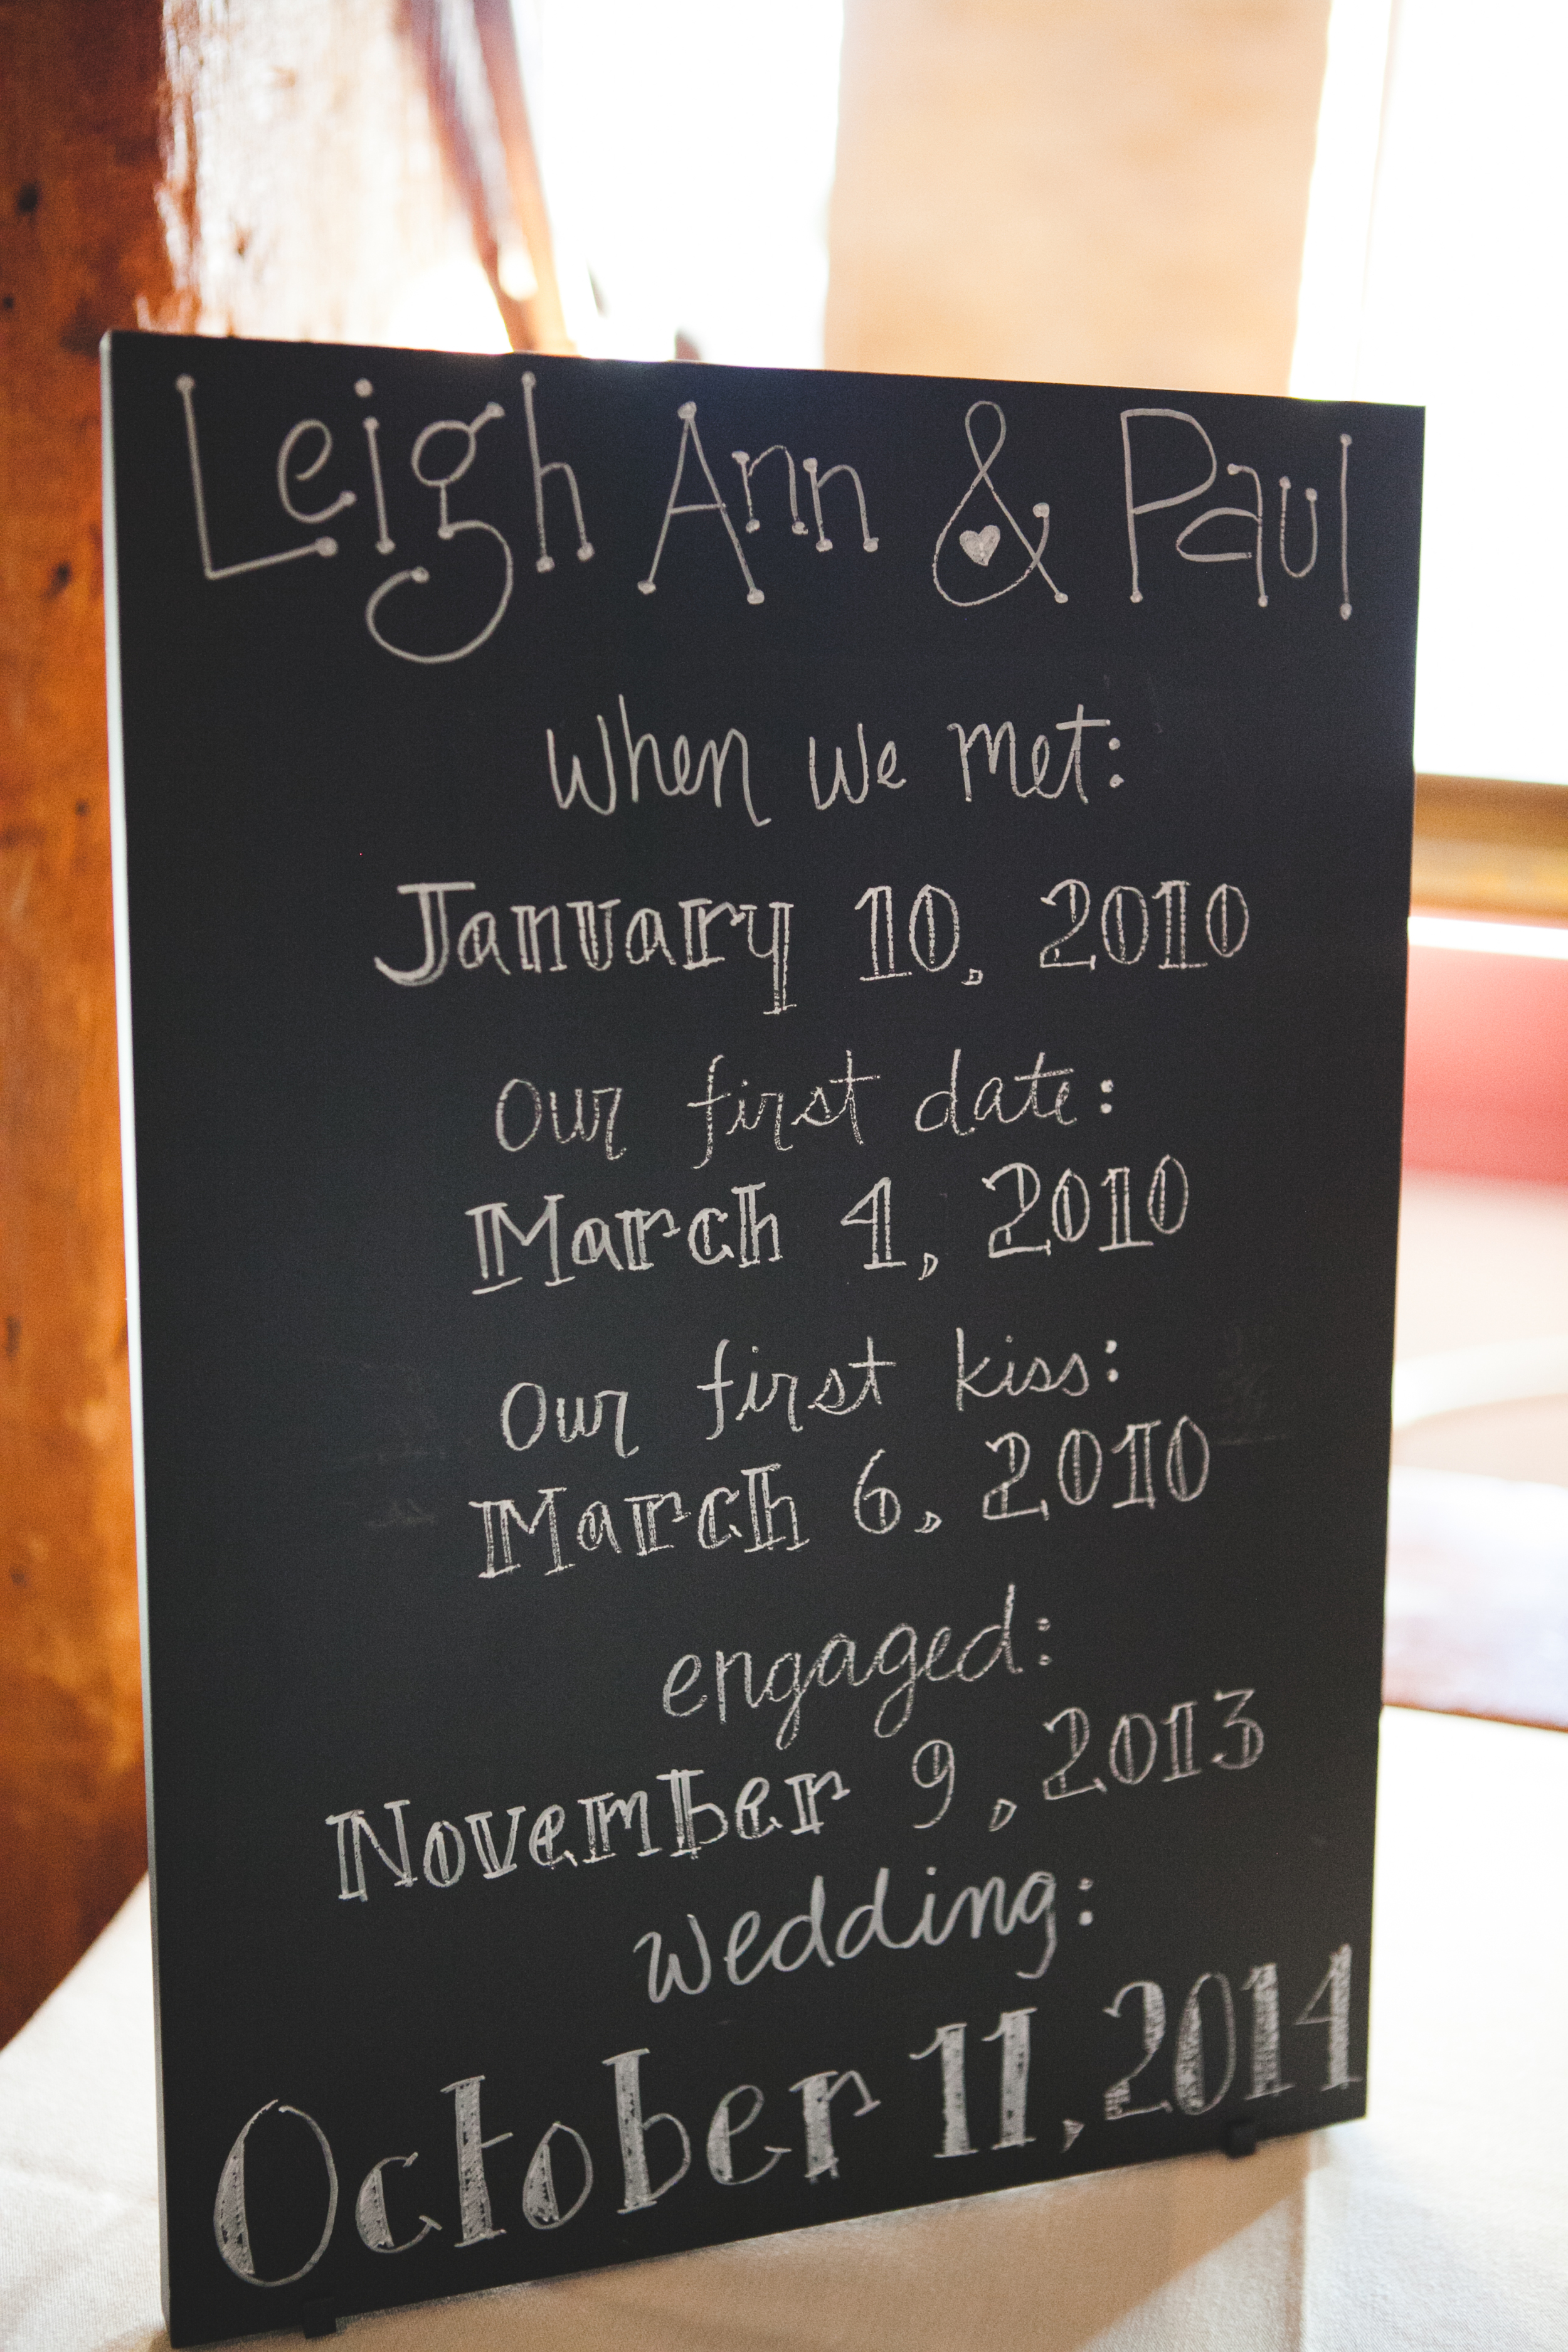 Leigh Ann & Paul
when we met:
January 10, 2010
Our first date:
March 4, 2010
Our first kiss:
March 6, 2010
engaged:
November 9, 2013
wedding:
October 11, 2014